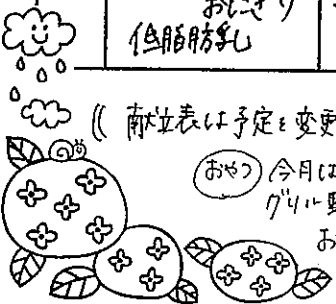 おにぎり
低脂肪乳
(( 献立表は予定を変更
おやつ 今月は
グリル
お